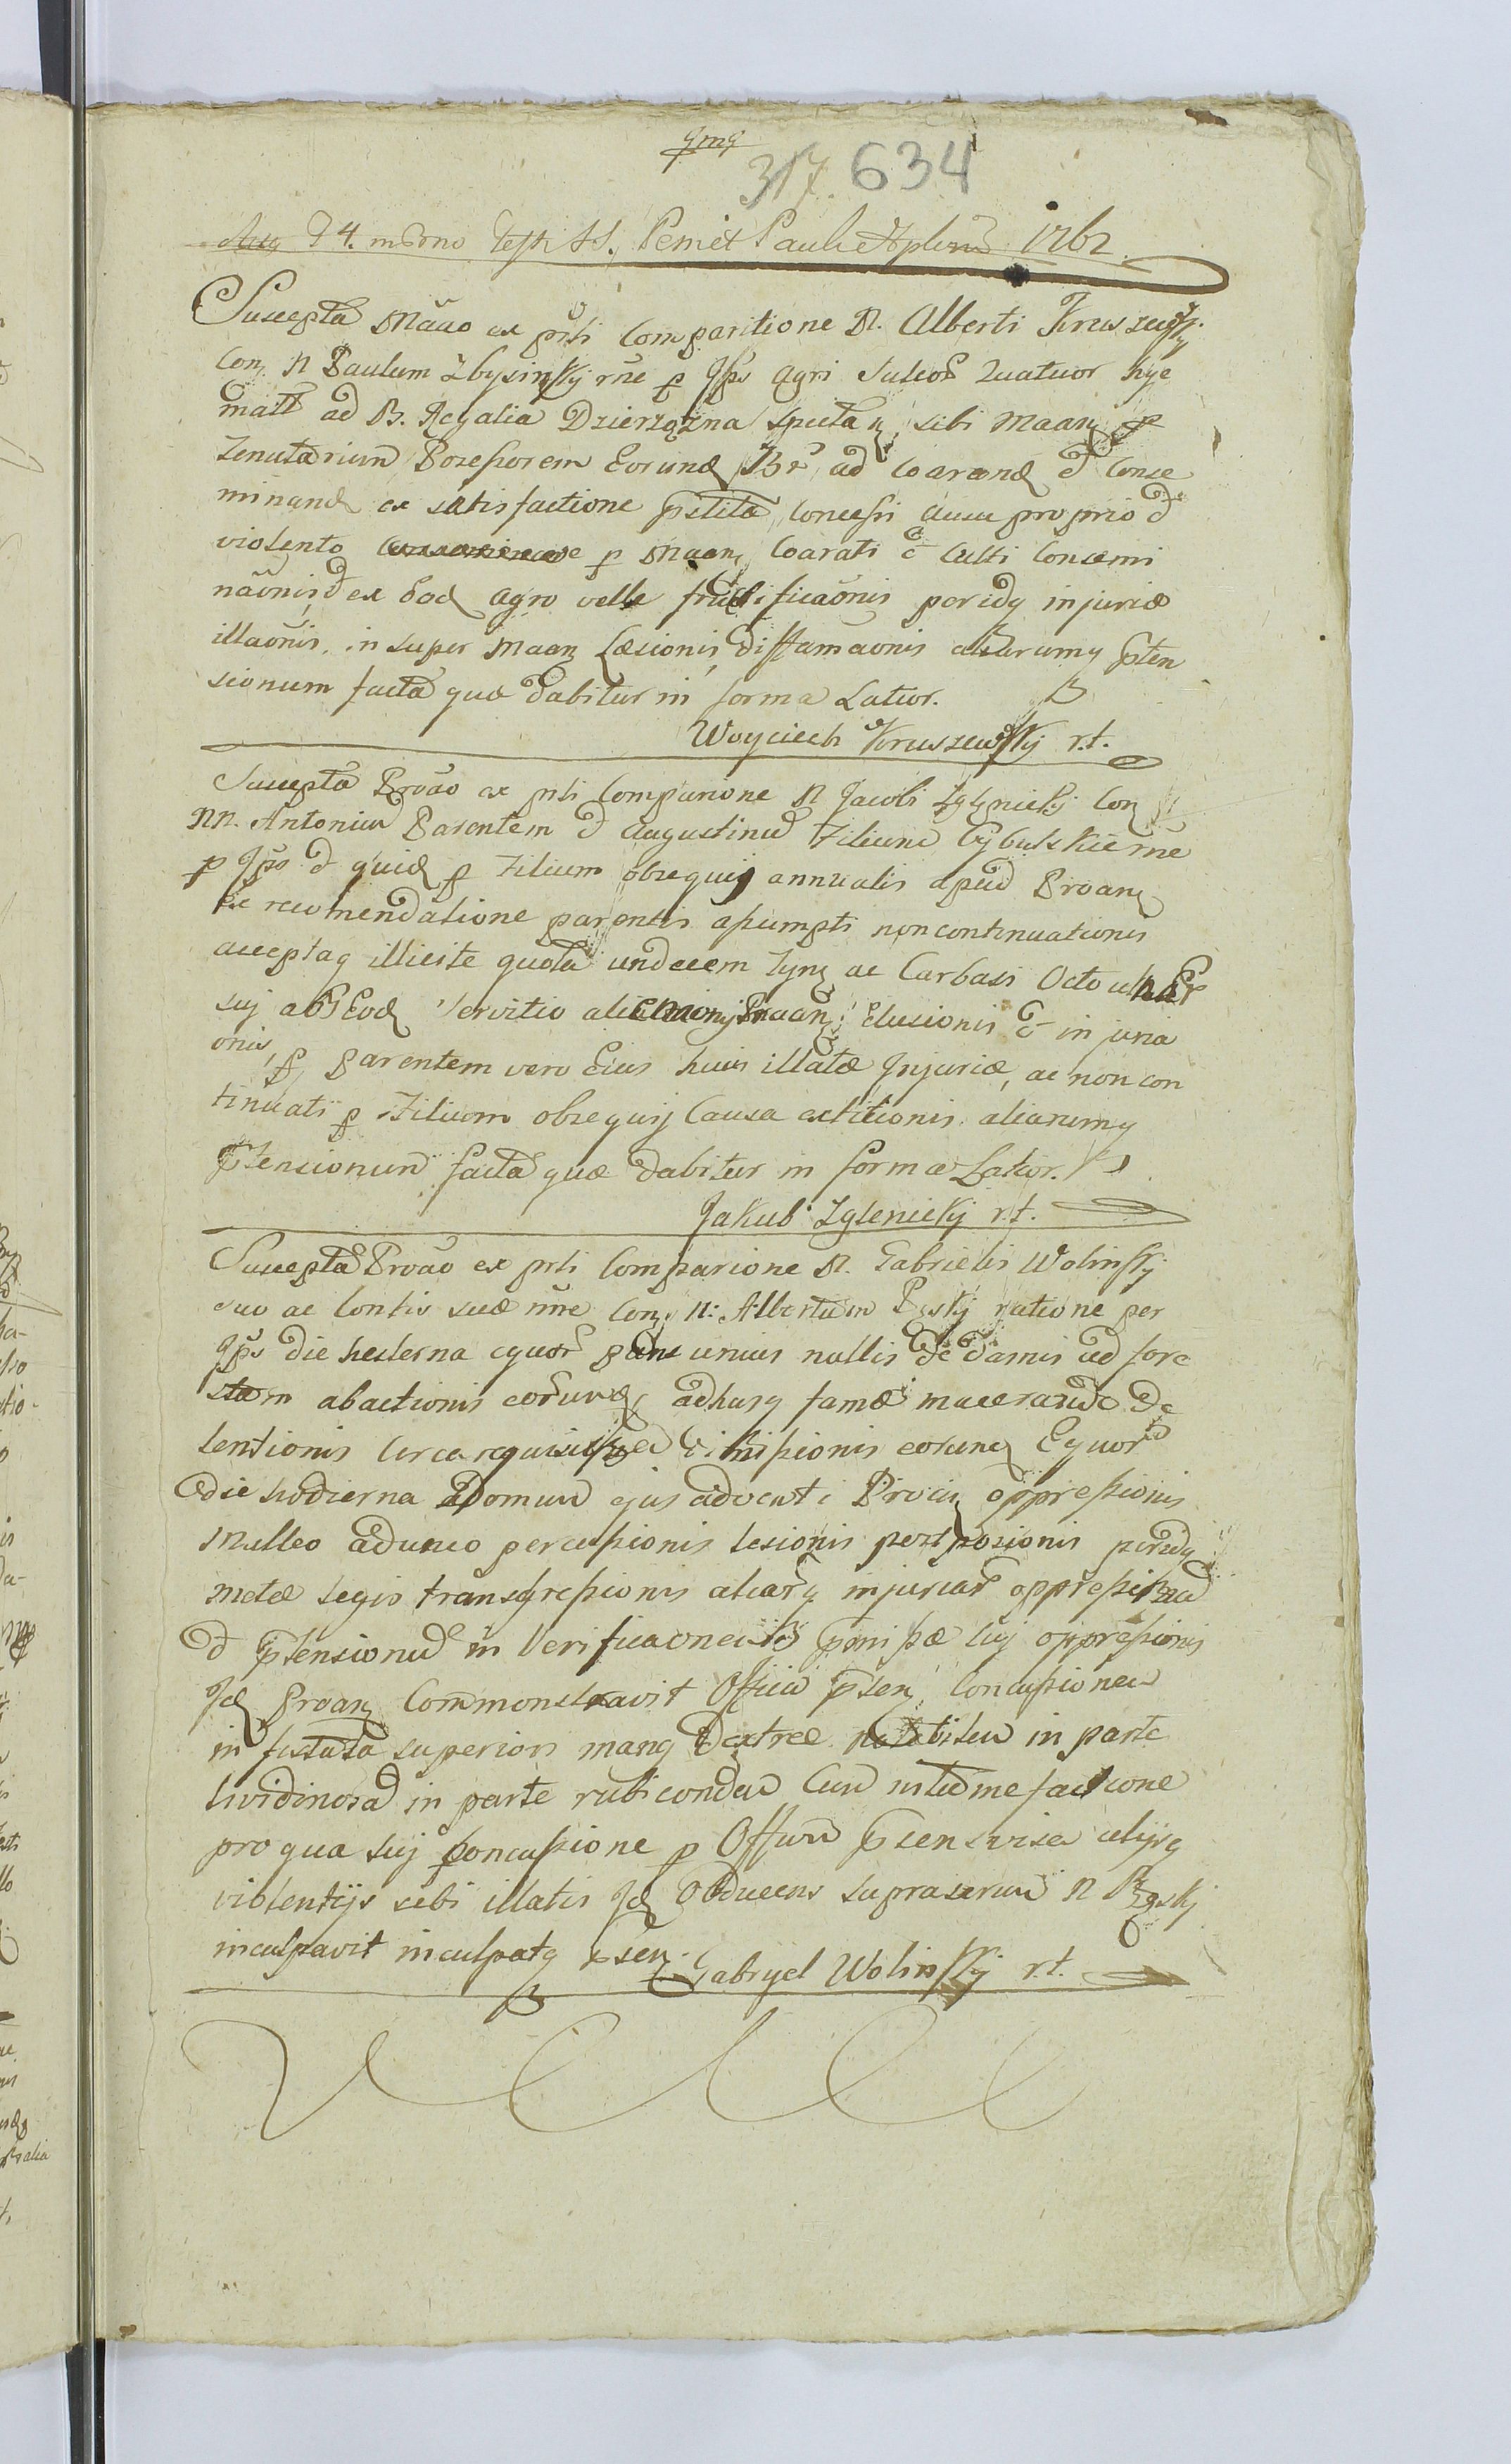 317. 634
4. Festi SS. Petri et Pauli Aplorum 1762.
Suscepta Maño ex prti Comparitione N. Alberti Kruszewskj
Con N Paulum Zbysinskj rñe p Jps Agri Sulcor Quatuor hye
mall ad B. Regalia Dzierzązna spectan sibi Maanq p
Tenutarium Possessorem Eorund Br ad Coarand et Conse
minand ex satisfactione pstita Concessi ausu proprio et
violento p Maanq Coarati et Culti Consemi
nãonis et ex eod agro velle fructificãonis peridq injuriæ
illãonis, in super Maanq Læsionis, diffamãonis aliarumq pten
sionum facta quæ dabitur in forma Latior.
Woyciech Kruszewskj r.t.
Suscepta Proão ex prti Comparione N Jacobi Zglenickj Con
NN. Antonium Parentem et Augustinum Filium Cybulskie rñe
p Jps et quid p Filium obsequij annualis apud Proanq
ex recomendatione parentis assumpti non continuationis
acceptaq illicite quota undecem Tynf ac Carbasi Octo
sui ab Eod servitio Proanq Elusionis et in juria
onis, p parentem vero Eius huius illatæ Injuriæ, ac non con
tinuati p Filium obsequij Causa extitionis aliarumq
ptensionum facta quæ dabitur in forma Latior.
Jakub Zglenickj r.t.
Suscepta Proão ex prti Comparione N. Gabrielis Wolinskj
suo ac Contis suæ nñe Con N: Albertum ratione per
Jps die hesterna equor unius nullis de damis ad fore
stam abactionis eorund, adhusq famæ macerandæ De
tentionis Circa dimissionis eorund Equor
et die hodierna ad Domum ejus adventi Proan oppressionis
Malleo adunco percussionis lesionis peridq
metæ legis transgressionis aliarq injuriar oppressionum
et ptensionum in Verificãonem sui oppressionis
Id Proanq Commonstravit Officio psen, Concussionem
in superiori manq dextræ in parte
lividinosa in parte rubicondam Cum intumefactione
pro qua sui Concussione p Offium psens visa alijsq
violentijs sibi illatis Id Obducens suprascrium N
inculpavit inculpatq psen. Gabryel Wolinskj r.t.